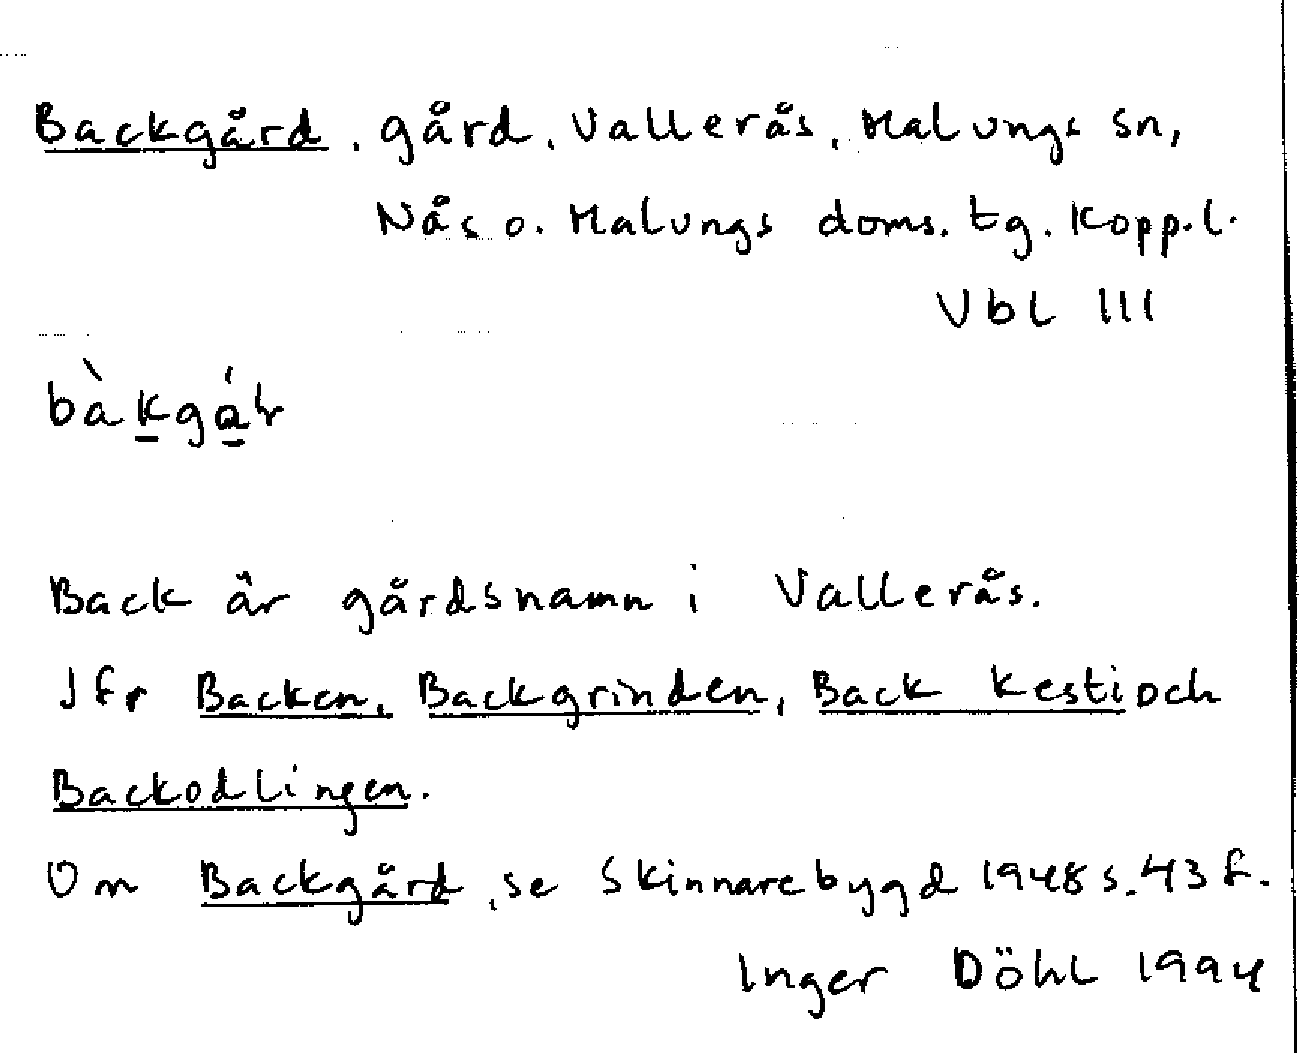 Backgård, gård, Vallerås, Malungs sn,
Nås o. Malungs doms. tg. Kopp.l.
Vbl III
bàkgár
Back är gårdsnamn i Vallerås.
Jfr Backen, Backgrinden, Back Kesti och
Backodlingen.
Om Backgård, se Skinnarebygd 1948 s. 43 f.
Inger Döhl 1994